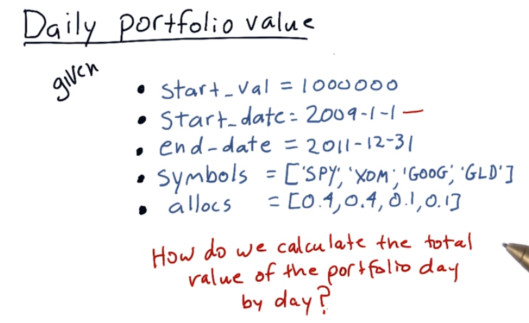 Daily portfolio value
given
• start_val = 1000000
• start_date = 2009-1-1
• end-date = 2011-12-31
• symbols = ['SPY', 'XOM', 'GOOG', 'GLD']
• allocs = [0.4, 0.4, 0.1, 0.1]
How do we calculate the total
value of the portfolio day
by day?